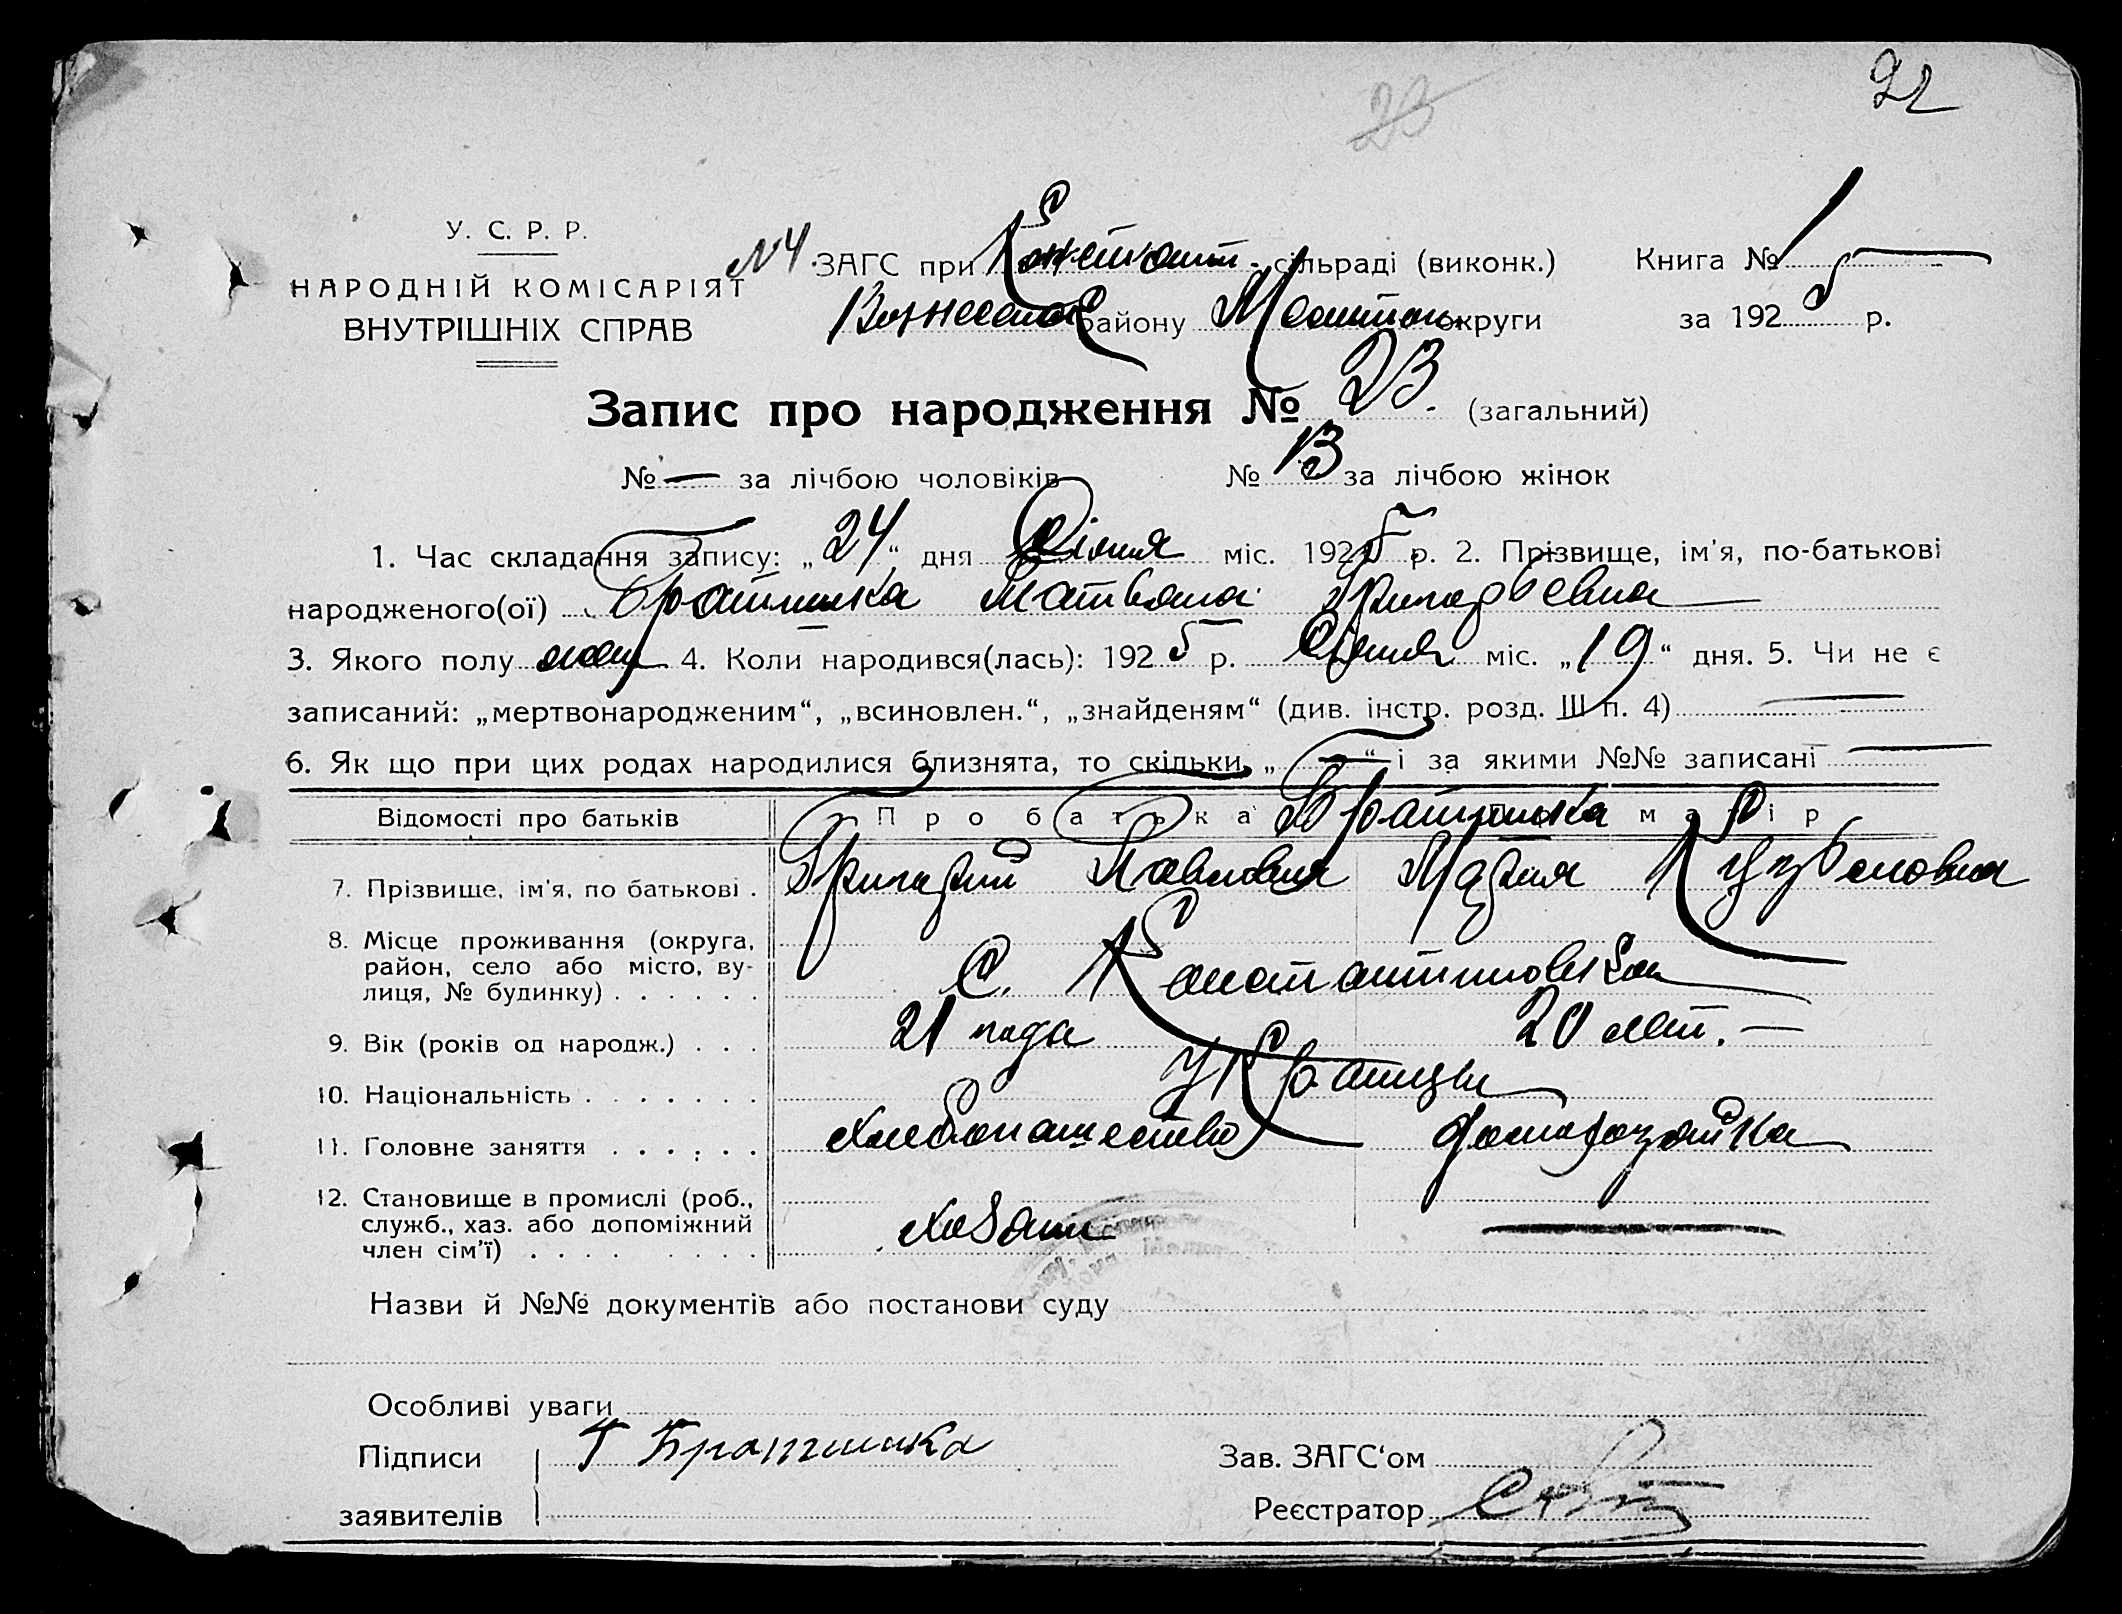 22
23
У. С. Р. Р.
НАРОДНІЙ КОМІСАРІЯТ
ВНУТРІШНІХ СПРАВ
№4 ЗАГС при Констант. сільраді (виконк.) Книга № 1
Вознесенск району округи за 1925 р.
Запис про народження № 23. (загальний)
№ — за лічбою чоловіків № 13 за лічбою жінок
1. Час складання запису: „24“ дня міс. 1925 р. 2. Прізвище, ім'я, по-батькові
народженого(ої) Григорьевна
3. Якого полу жен 4. Коли народився(лась): 1925 р. міс. „19“ дня. 5. Чи не є
записаний: „мертвонародженим“, „всиновлен.“, „знайденям“ (див. інстр. розд. Ш п. 4) —
6. Як що при цих родах народилися близнята, то скільки „—“ і за якими №№ записані —
Відомості про батьків Про батька Про матір
7. Прізвище, ім'я, по батькові . Григорий Павлович Мария
8. Місце проживання (округа,
район, село або місто, ву-
лиця, № будинку) . . . . . . С. Константиновка
9. Вік (років од народж.) . . . 21 года 20 лет. —
10. Національність . . . . . . . Украинцы
11. Головне заняття . . . . . . Хлебопашество домохозяйка
12. Становище в промислі (роб.,
служб., хаз. або допоміжний
член сім'ї) . . . . . . . . Хозаин —
Назви й №№ документів або постанови суду
Особливі уваги
Підписи Г
Зав. ЗАГС'ом
заявителів
Реєстратор